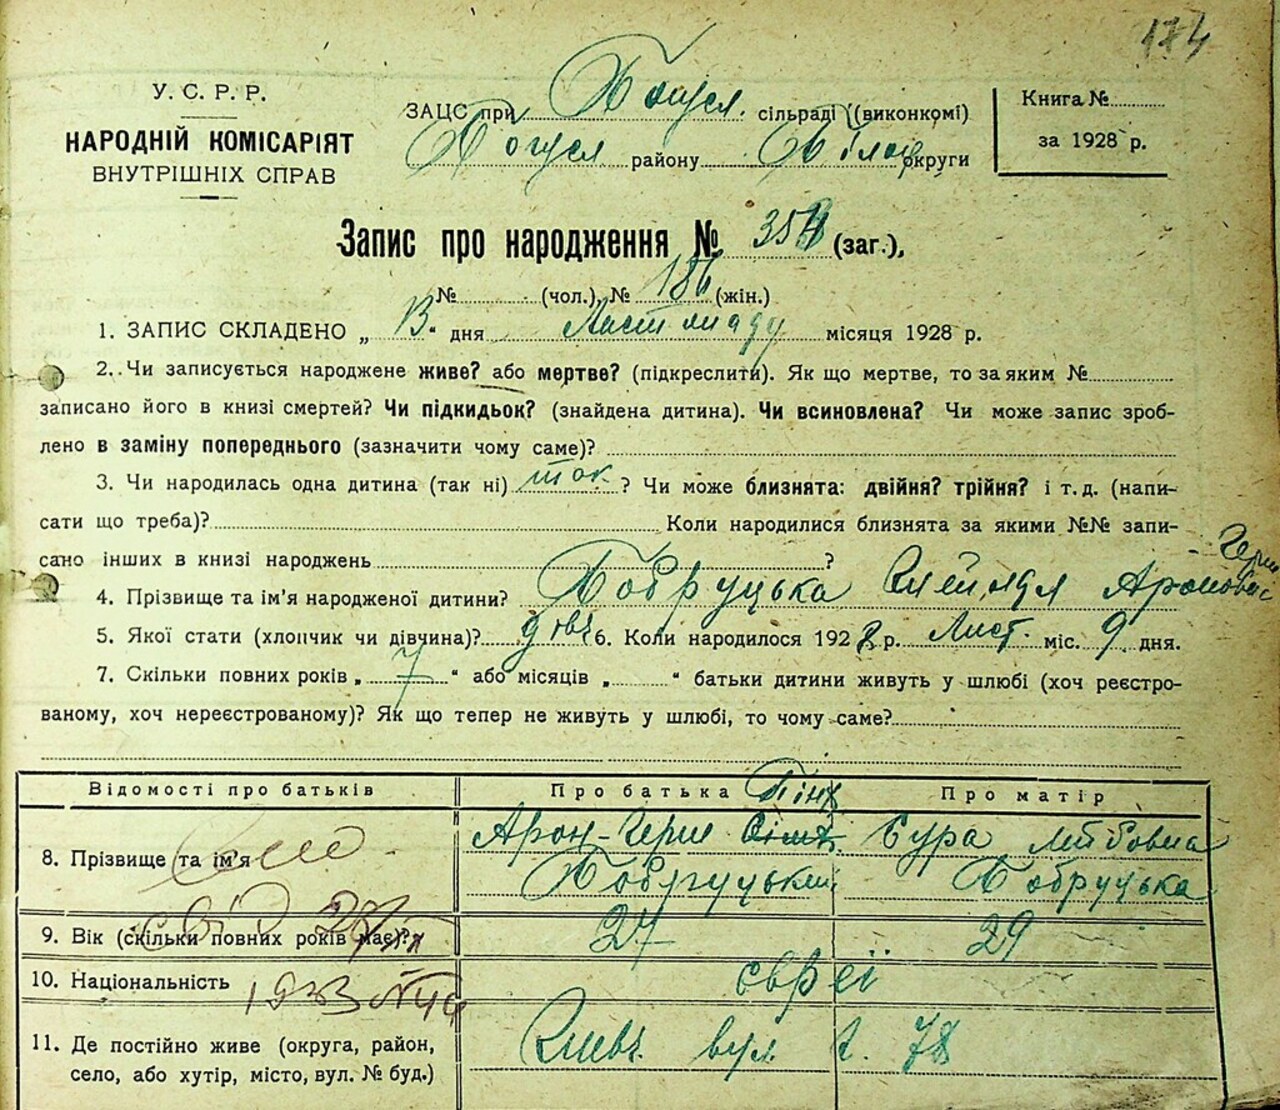 174
У. С. Р. Р.
НАРОДНІЙ КОМІСАРІЯТ
ВНУТРІШНІХ СПРАВ
ЗАЦС при Богусл. сільраді (виконкомі)
Богусл району округи
Книга №
за 1928 р.
Запис про народження № (заг.),
№ (чол.), № 186 (жін.)
1. ЗАПИС СКЛАДЕНО „ 13 “ дня Листопаду місяця 1928 р.
2. Чи записується народжене живе? або мертве? (підкреслити). Як що мертве, то за яким №
записано його в книзі смертей? Чи підкидьок? (знайдена дитина). Чи всиновлена? Чи може запис зроб-
лено в заміну попереднього (зазначити чому саме)?
3. Чи народилась одна дитина (так ні) так ? Чи може близнята: двійня? трійня? і т. д. (напи-
сати що треба)? Коли народилися близнята за якими №№ запи-
сано інших в книзі народжень ?
Герш
4. Прізвище та ім’я народженої дитини? Бобруцька Шейндл Ароновас
5. Якої стати (хлопчик чи дівчина)? дівч 6. Коли народилося 1928 р. Лист. міс. 9 дня.
7. Скільки повних років „ 7 “ або місяців „ “ батьки дитини живуть у шлюбі (хоч реєстро-
ваному, хоч нереєстрованому)? Як що тепер не живуть у шлюбі, то чому саме?
Відомості про батьків Про батька Про матір
Пінх
8. Прізвище та ім’я Арон-Герш Сура Лейбовна
Бобруцький Бобруцька
9. Вік (скільки повних років має)? 27 29
10. Національність євреї
1933 №
11. Де постійно живе (округа, район,
село, або хутір, місто, вул. № буд.)
вул. 78